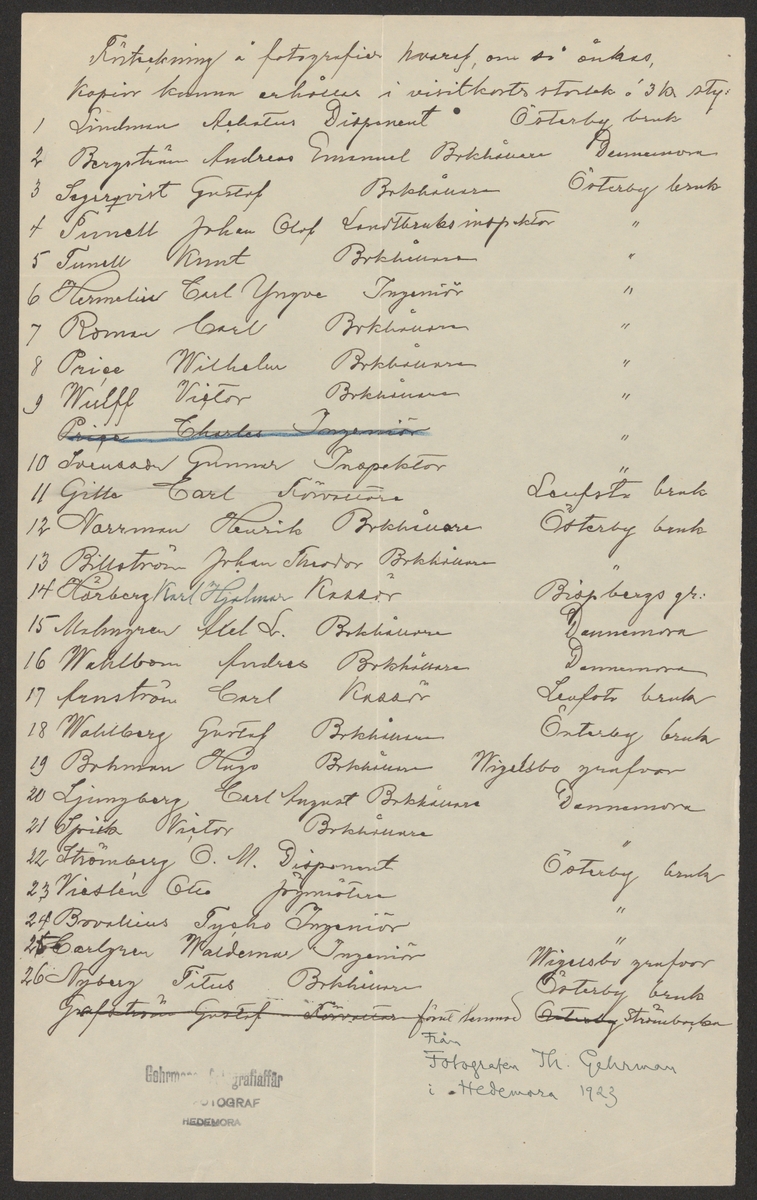 Förteckning å fotografier hvaraf, om så önskas,
kopior kunna erhållas i visitkortsstorlek á 3 kr sty:
1 Lindman Achatus Disponent Österby bruk
2 Bergström Andreas Emanuel Bokhållare Dannemora
3 Segerqvist Gustaf Bokhållare Österby bruk
4 Tunell Johan Olof Landtbruksinspektor "
5 Tunell Knut Bokhållare "
6 Hermelin Carl Yngve Ingeniör "
7 Roman Carl Bokhållare "
8 Prige Wilhelm Bokhållare "
9 Wulff Victor Bokhållare "
Prige Charles Ingeniör "
10 Svensson Gunnar Inspektor "
11 Gille Carl Förvaltare Leufsta bruk
12 Norrman Henrik Bokhållare Österby bruk
13 Billström Johan Theodor Bokhållare "
14 Hårberg Karl Hjalmar Kassör Bispbergs gr:
15 Malmgren Axel L. Bokhållare Dannemora
16 Wahlbom Andreas Bokhållare Dannemora
17 Arnström Carl Kassör Leufsta bruk
18 Wahlberg Gustaf Bokhållare Österby bruk
19 Bohman Hugo Bokhållare Wigelsbo grufvor
20 Ljungberg Carl August Bokhållare Dannemora
21 Spiik Victor Bokhållare "
22 Strömberg O. M. Disponent Österby bruk
23 Otto "
24 Bovallius Tycho Ingeniör "
25 Carlgren Waldemar Ingeniör Wigelsbo grufvor
26 Nyberg Titus Bokhållare Österby bruk
Grafström Gustaf Förvaltare Österby Strömbacka
Från
Fotografen Th. Gehrman
i Hedemora 1923
Gehrmans Fotografiaffär
FOTOGRAF
HEDEMORA